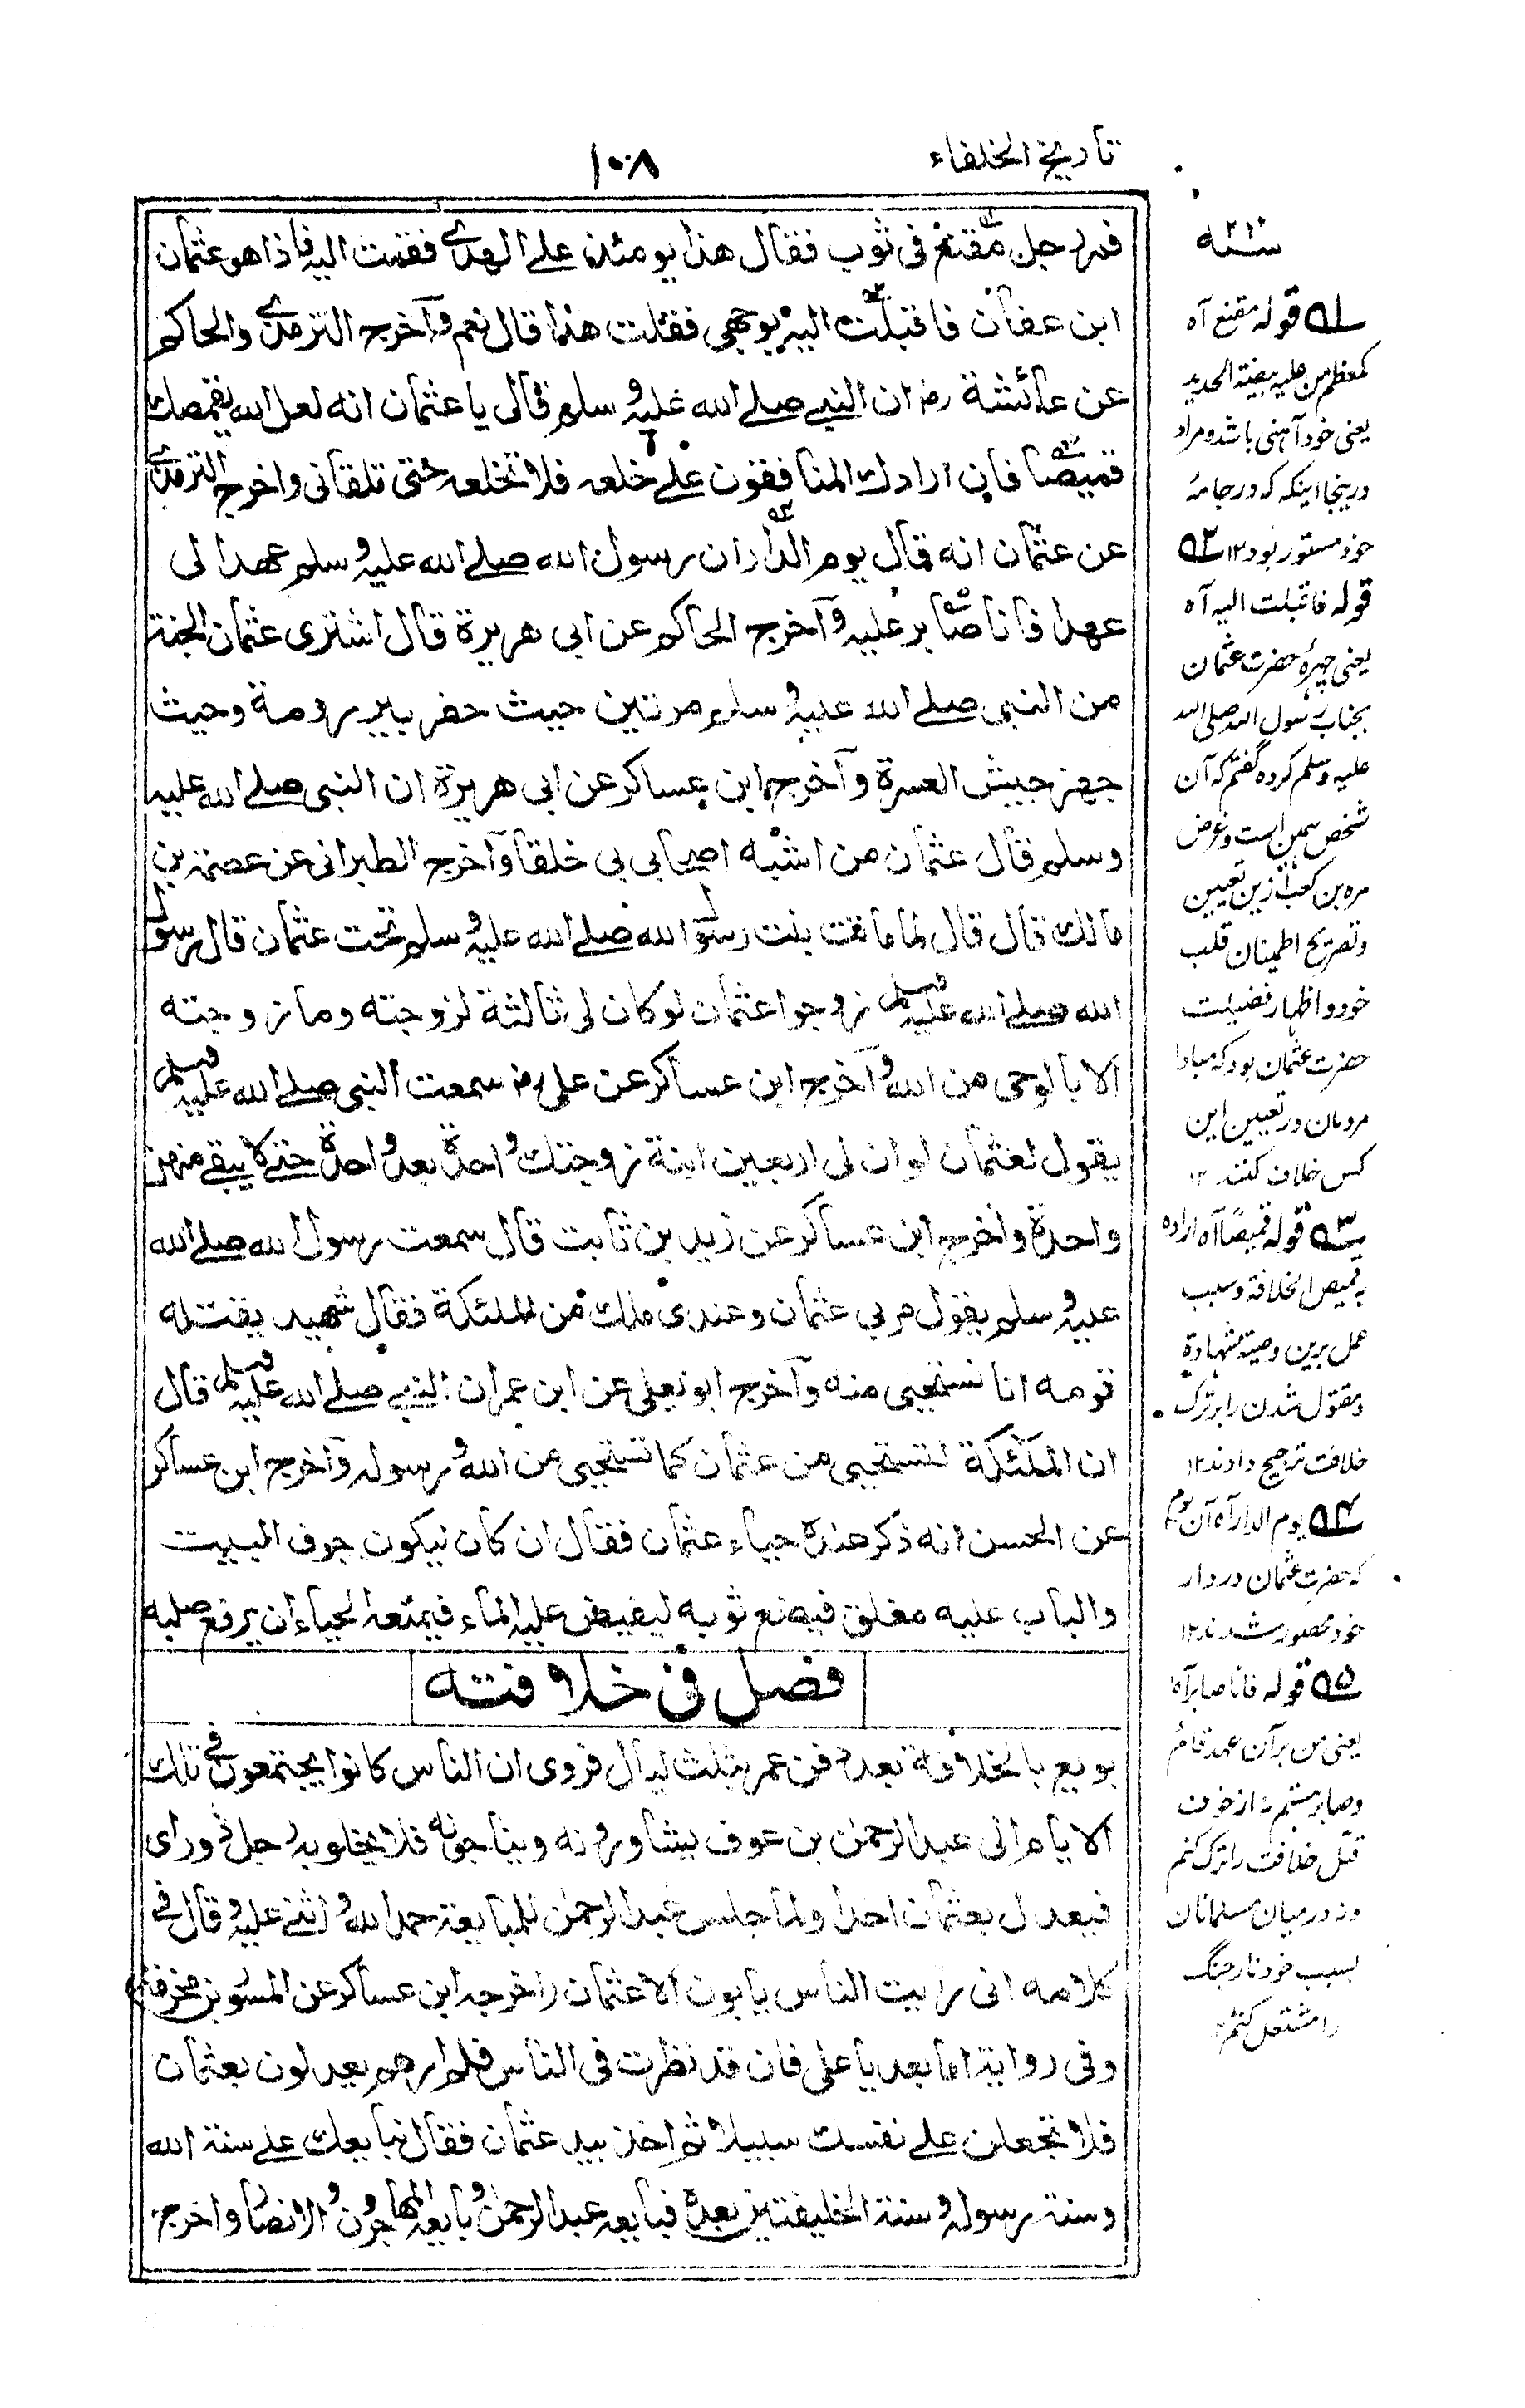 تاريخ الخلفاء
١٠٨
فمر رجل مقنع فى ثوب فقال هذا يومئذ علے الهدے فقمت اليه فاذا هو عثمان
ابن عفان فاقبلت اليه بوجهى فقلت هذا قال نعم وآخرج الترمذے والحاكم
عن عائشة رض ان النبے صلے الله عليه وسلم قال يا عثمان انه لعل الله يقمصك
قميصا فان ارادك المنافقون علے خلعه فلا تخلعه حتى تلقانى واخرج الترمذے
عن عثمان انه قال يوم الدار ان رسول الله صلے الله عليه وسلم عهد الى
عهدا فانا صابر عليه وآخرج الحاكم عن ابى هريرة قال اشترى عثمان الجنة
من النبى صلے الله عليه وسلم مرتين حيث حفر بير رومة وحيث
جهز جيش العسرة وآخرج ابن عساكر عن ابى هريرة ان النبى صلے الله عليه
وسلم قال عثمان من اشبه اصحابى بى خلقا وآخرج الطبرانى عن عصمة بن
مالك قال قال لما ماتت بنت رسول الله صلے الله عليه وسلم تحت عثمان قال رسول
الله صلے الله عليه وسلم زوجوا عثمان لو كان لى ثالثة لزوجته وما زوجته
الا بالوحى من الله وآخرج ابن عساكر عن على رض سمعت النبى صلے الله عليه وسلم
يقول لعثمان لو ان لى اربعين ابنة زوجتك واحدة بعد واحدة حتے لا يبقے منهن
واحدة وأخرج ابن عساكر عن زيد بن ثابت قال سمعت رسول الله صلے الله
عليه وسلم يقول مر بى عثمان وعندى ملك من الملئكة فقال شهيد يقتله
قومه انا نستحيى منه وآخرج ابو يعلى عن ابن عمر ان النبے صلے الله عليه وسلم قال
ان الملئكة لتستحيى من عثمان كما تستحيى من الله ورسوله وآخرج ابن عساكر
عن الحسن انه ذكر عنده حياء عثمان فقال ان كان ليكون جوف البيت
والباب عليه مغلق فيضع ثوبه ليفيض عليه الماء فيمنعه الحياء ان يرفع صلبه
فصل فى خلافته
بويع بالخلافة بعد دفن عمر بثلث ليال فروى ان الناس كانوا يجتمعون فے تلك
الايام الى عبد الرحمن بن عوف يشاورونه ويناجونه فلا يخلو به رجل ذو راى
فيعدل بعثمان احدا ولما جلس عبد الرحمن للمبايعة حمد الله واثنے عليه وقال فے
كلامه انى رايت الناس يابون الا عثمان اخرجه ابن عساكر عن المسور بن مخرمة
وفى رواية اما بعد يا على فان قد نظرت فى الناس فلم ارهم يعدلون بعثمان
فلا تجعلن علے نفسك سبيلا ثم اخذ بيد عثمان فقال نبايعك علے سنة الله
وسنة رسوله وسنة الخليفتين بعده فبايعه عبد الرحمن وبايعه المهاجرون والانصار واخرج
سنه
قوله مقنع آه
كمعظم من عليه بيضة الحديد
يعنى خود آهنى باشد ومراد
درينجا اينكه كه در جامۂ
خود مستور بود ١٢
قوله فاقبلت اليه آه
يعنى چهرۂ حضرت عثمان
بجناب رسول الله صلى الله
عليه وسلم كرده گفتم كه آن
شخص همين است وغرض
مره بن كعب ازين تعيين
وتصريح اطمينان قلب
خود واظهار فضيلت
حضرت عثمان بود كه مبادا
مردمان در تعيين اين
كس خلاف كنند ١٢
قوله قميصا آه اراده
به قميص الخلافة وسبب
عمل برين وصية شهادة
ومقتول شدن را بر ترك
خلافت ترجيح دادند ١٢
يوم الدار آه آن يوم
كه حضرت عثمان در دار
خود محصور شدند ١٢
قوله فانا صابر آه
يعنى من بر آن عهد قائم
وصابر هستم نه از خوف
قتل خلافت را ترك كنم
ونه درميان مسلمانان
بسبب خود نار جنگ
را مشتعل كنم